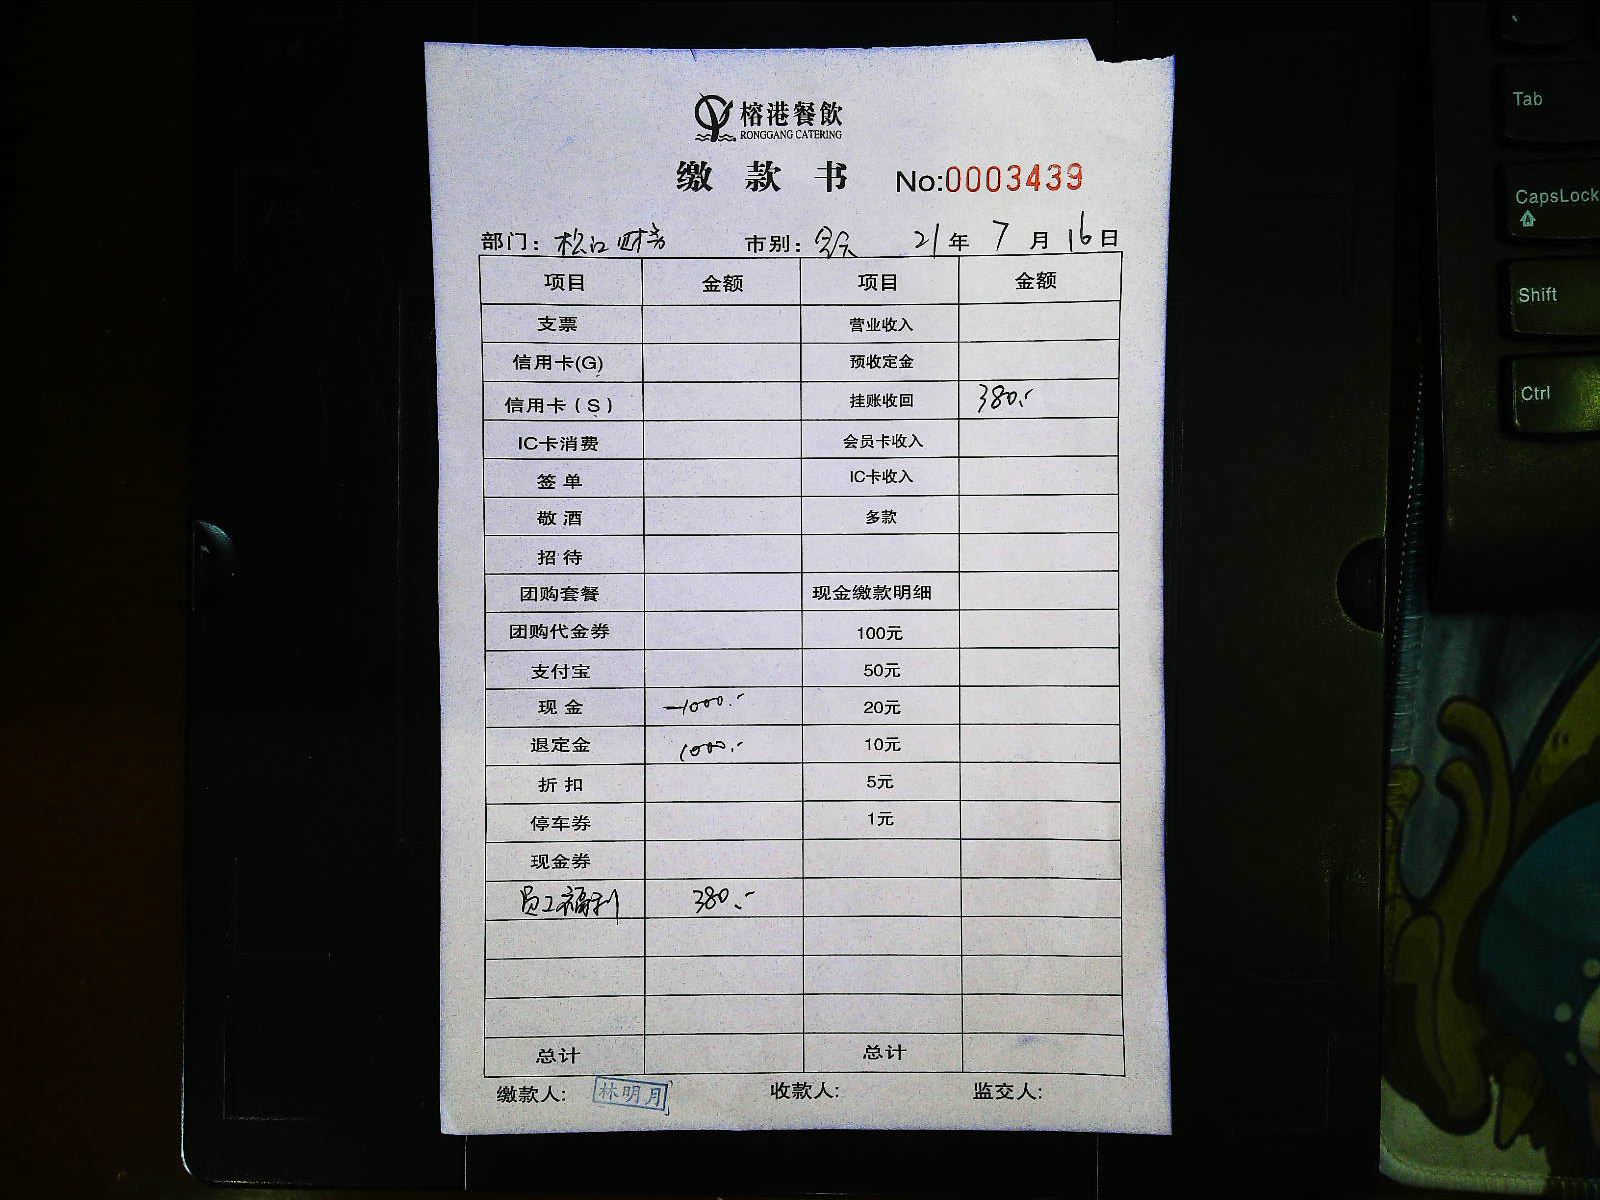 榕港餐飲
RONGGANG CATERING
缴款书 No:0003439
部门：松江财务 市别： 21年7月16日
项目 金额 项目 金额
支票 营业收入
信用卡(G) 预收定金
信用卡(S) 挂账收回 380.-
IC卡消费 会员卡收入
签单 IC卡收入
敬酒 多款
招待
团购套餐 现金缴款明细
团购代金券 100元
支付宝 50元
现金 -1000.- 20元
退定金 1000.- 10元
折扣 5元
停车券 1元
现金券
员工福利 380.-
总计 总计
缴款人： 林明月 收款人: 监交人:
Tab
CapsLock
Shift
Ctrl